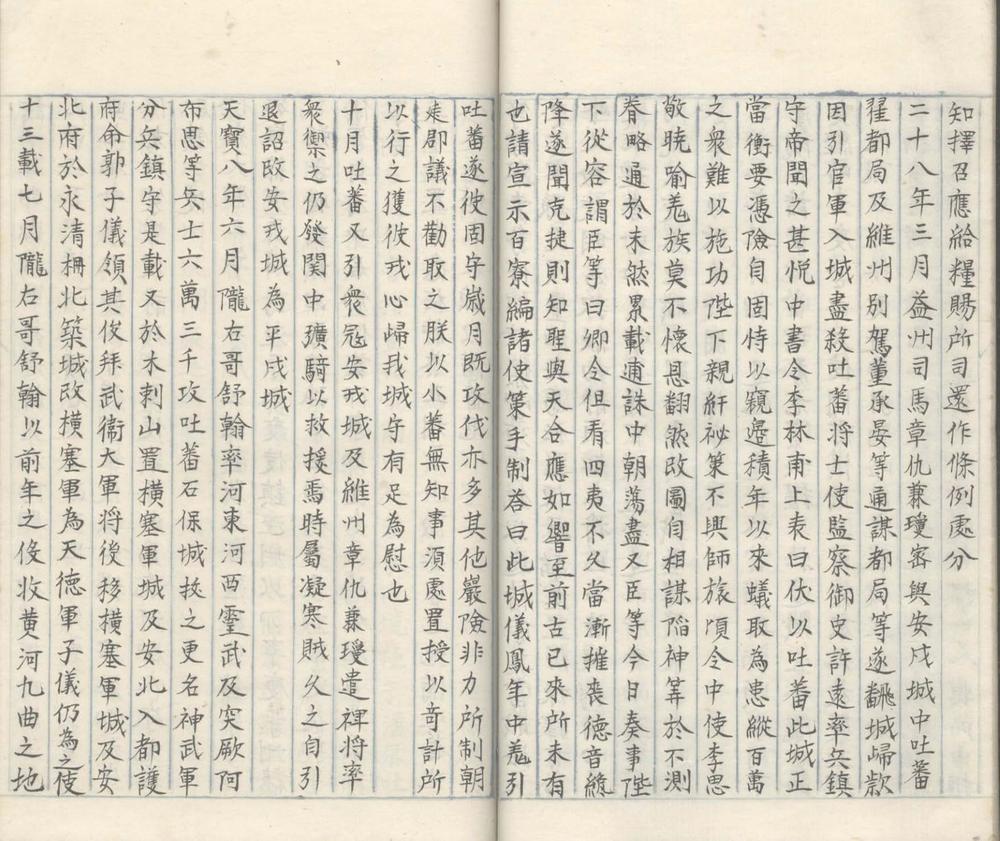 知擇召應給糧賜所司還作條例處分
二十八年三月益州司馬章仇兼瓊密與安戍城中吐蕃
翟都局及維州別駕董承晏等通謀都局等遂飜城歸款
因引官軍入城盡殺吐蕃将士使監察御史許遠率兵鎮
守帝聞之甚悅中書令李林甫上表曰伏以吐蕃此城正
當衝要憑險自固恃以窺邊積年以來蟻取為患縱百萬
之衆難以施功陛下親紆祕策不興師旅頃令中使李思
敬曉喻羗族莫不懷恩翻然改圖自相謀陷神筭於不測
眷略通於未然累載逋誅中朝蕩盡又臣等今日奏事陛
下從容謂臣等曰卿令但看四夷不久當漸摧喪德音纔
降遂聞克捷則知聖與天合應如響至前古已來所未有
也請宣示百寮編諸使策手制荅曰此城儀鳳年中羗引
吐蕃遂使固守歲月既攻伐亦多其他巖險非力所制朝
廷郡議不勸取之朕以小蕃無知事須處置授以奇計所
以行之獲彼戎心歸我城守有足為慰也
十月吐蕃又引衆冦安戎城及維州章仇兼瓊遣裨将率
衆禦之仍發関中彍騎以救援焉時屬凝寒賊久之自引
退詔改安戎城為平戍城
天寶八年六月隴右哥舒翰率河東河西靈武及突厥阿
布思等兵士六萬三千攻吐蕃石保城拔之更名神武軍
分兵鎮守是載又於木剌山置横塞軍城及安北入都護
府命郭子儀領其俊拜武衞大軍将後移横塞軍城及安
北府於永清柵北築城改横塞軍為天德軍子儀仍為之使
十三載七月隴右哥舒翰以前年之後收黄河九曲之地